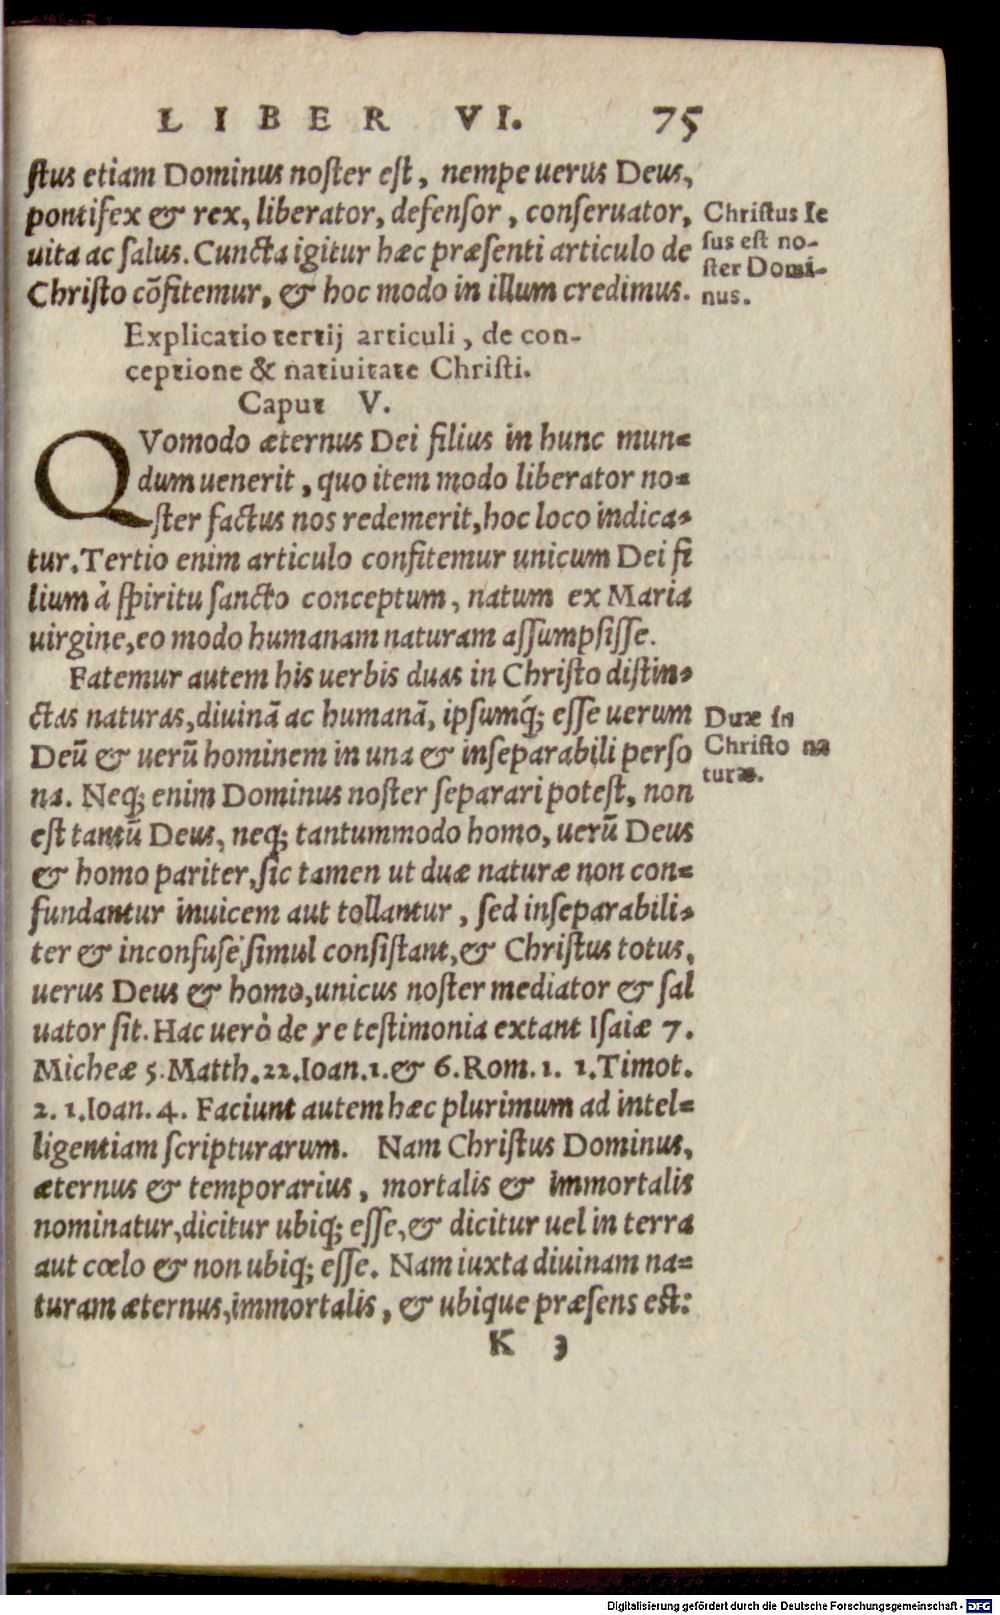 LIBER VI. 75
ſtus etiam Dominus noſter eſt, nempe uerus Deus,
pontifex & rex, liberator, defenſor, conſeruator,
uita ac ſalus. Cuncta igitur hæc præſenti articulo de
Chriſto cōfitemur, & hoc modo in illum credimus.
Chriſtus Ie
ſus eſt no-
ſter Domi-
nus.
Explicatio tertij articuli, de con-
ceptione & natiuitate Chriſti.
Caput V.
QVomodo æternus Dei filius in hunc mun-
dum uenerit, quo item modo liberator no-
ſter factus nos redemerit, hoc loco indica-
tur. Tertio enim articulo confitemur unicum Dei fi
lium à ſpiritu ſancto conceptum, natum ex Maria
uirgine, eo modo humanam naturam aſſumpſiſſe.
Fatemur autem his uerbis duas in Chriſto diſtin-
ctas naturas, diuinā ac humanā, ipſumq́; eſſe uerum
Deū & uerū hominem in una & inſeparabili perſo
na. Neq; enim Dominus noſter ſeparari poteſt, non
eſt tantū Deus, neq; tantummodo homo, uerū Deus
& homo pariter, ſic tamen ut duæ naturæ non con-
fundantur inuicem aut tollantur, ſed inſeparabili-
ter & inconfuſè ſimul conſiſtant, & Chriſtus totus,
uerus Deus & homo, unicus noſter mediator & ſal
uator ſit. Hac uerò de re teſtimonia extant Iſaiæ 7.
Micheæ 5. Matth. 22. Ioan. 1. & 6. Rom. 1. 1. Timot.
2. 1. Ioan. 4. Faciunt autem hæc plurimum ad intel-
ligentiam ſcripturarum. Nam Chriſtus Dominus,
æternus & temporarius, mortalis & immortalis
nominatur, dicitur ubiq; eſſe, & dicitur uel in terra
aut cœlo & non ubiq; eſſe. Nam iuxta diuinam na-
turam æternus, immortalis, & ubique præſens est:
Duæ in
Chriſto na
turæ.
K 3
Digitalisierung gefördert durch die Deutsche Forschungsgemeinschaft - DFG